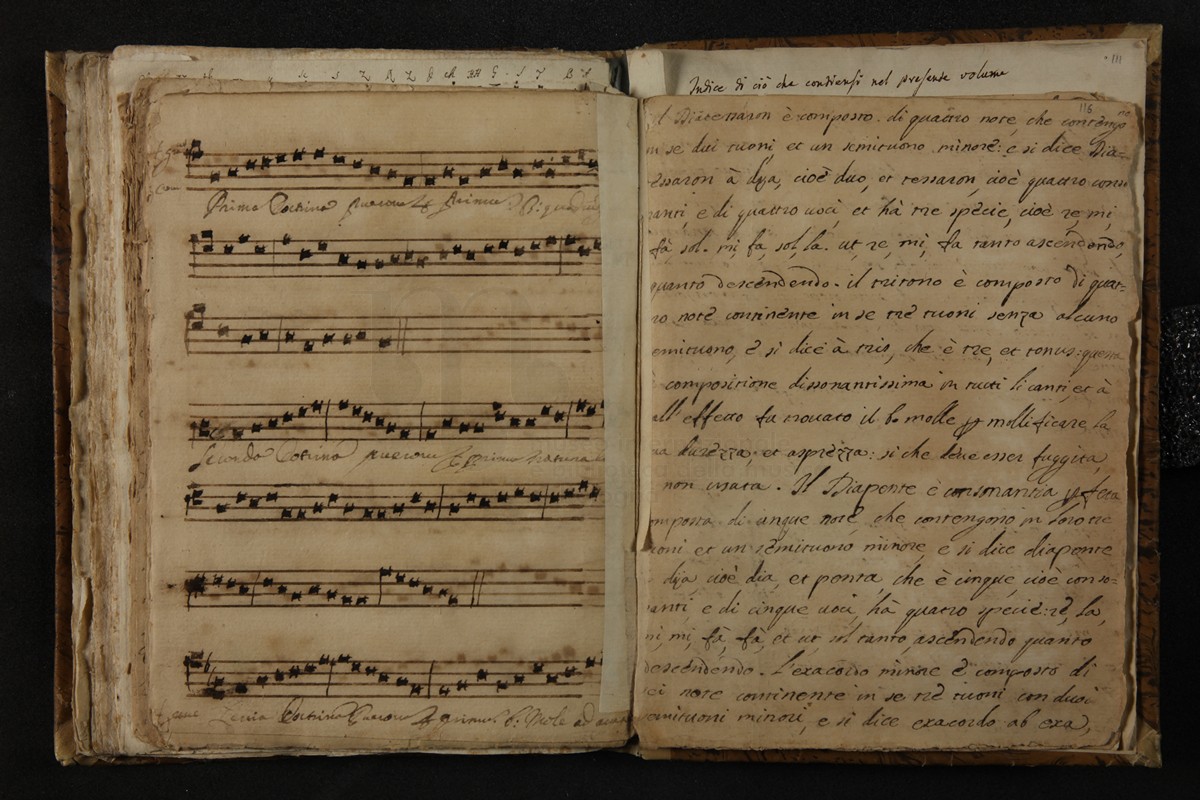 Prima Doctrina puerorum
Secorda puerorum
Tertia primus b. Mole ad
Indice di ciò che contiensi nel presente volume
111
116
Il Diatessaron è composto di quattro note, che contengo
in se dui tuoni, et un semituono minore: e si dice Dia=
essaron à dya, cioè duo, et tessaron, cioè quattro conso
nanti, e di quattro uoci, et hà tre spècie, cioè re, mi,
fà, sol. mi, fa, sol, la. ut, re, mi, fa tanto ascendendo,
quanto descendendo. il tritono è composto di quat=
ro note continente in se trè tuoni senza alcuno
emituono, e si dice à tris, che è tre, et tonus: questa
compositione dissonantissima in tutti li canti, et à
all' effetto fu trouato il b. molle p mollificare la
ua durezza, et asprezza: si che deue esser fuggita,
non usata. Il Diapente è consonantia pfetta
mposta di cinque note, che contengono in loro tre
tuoni et un semituono minore, e si dice diapente
dya, cioè dia, et penta, che è cinque, cioè conso=
nanti, e di cinque uoci, hà quatro specie: rè, la,
mi, mi, fà, fà, et ut, sol tanto ascendendo quanto
descendendo. L'exacordo minore è composto di
sei note continente in se trè tuoni con duoi
semituoni minori, e si dice exacordo ab exa,